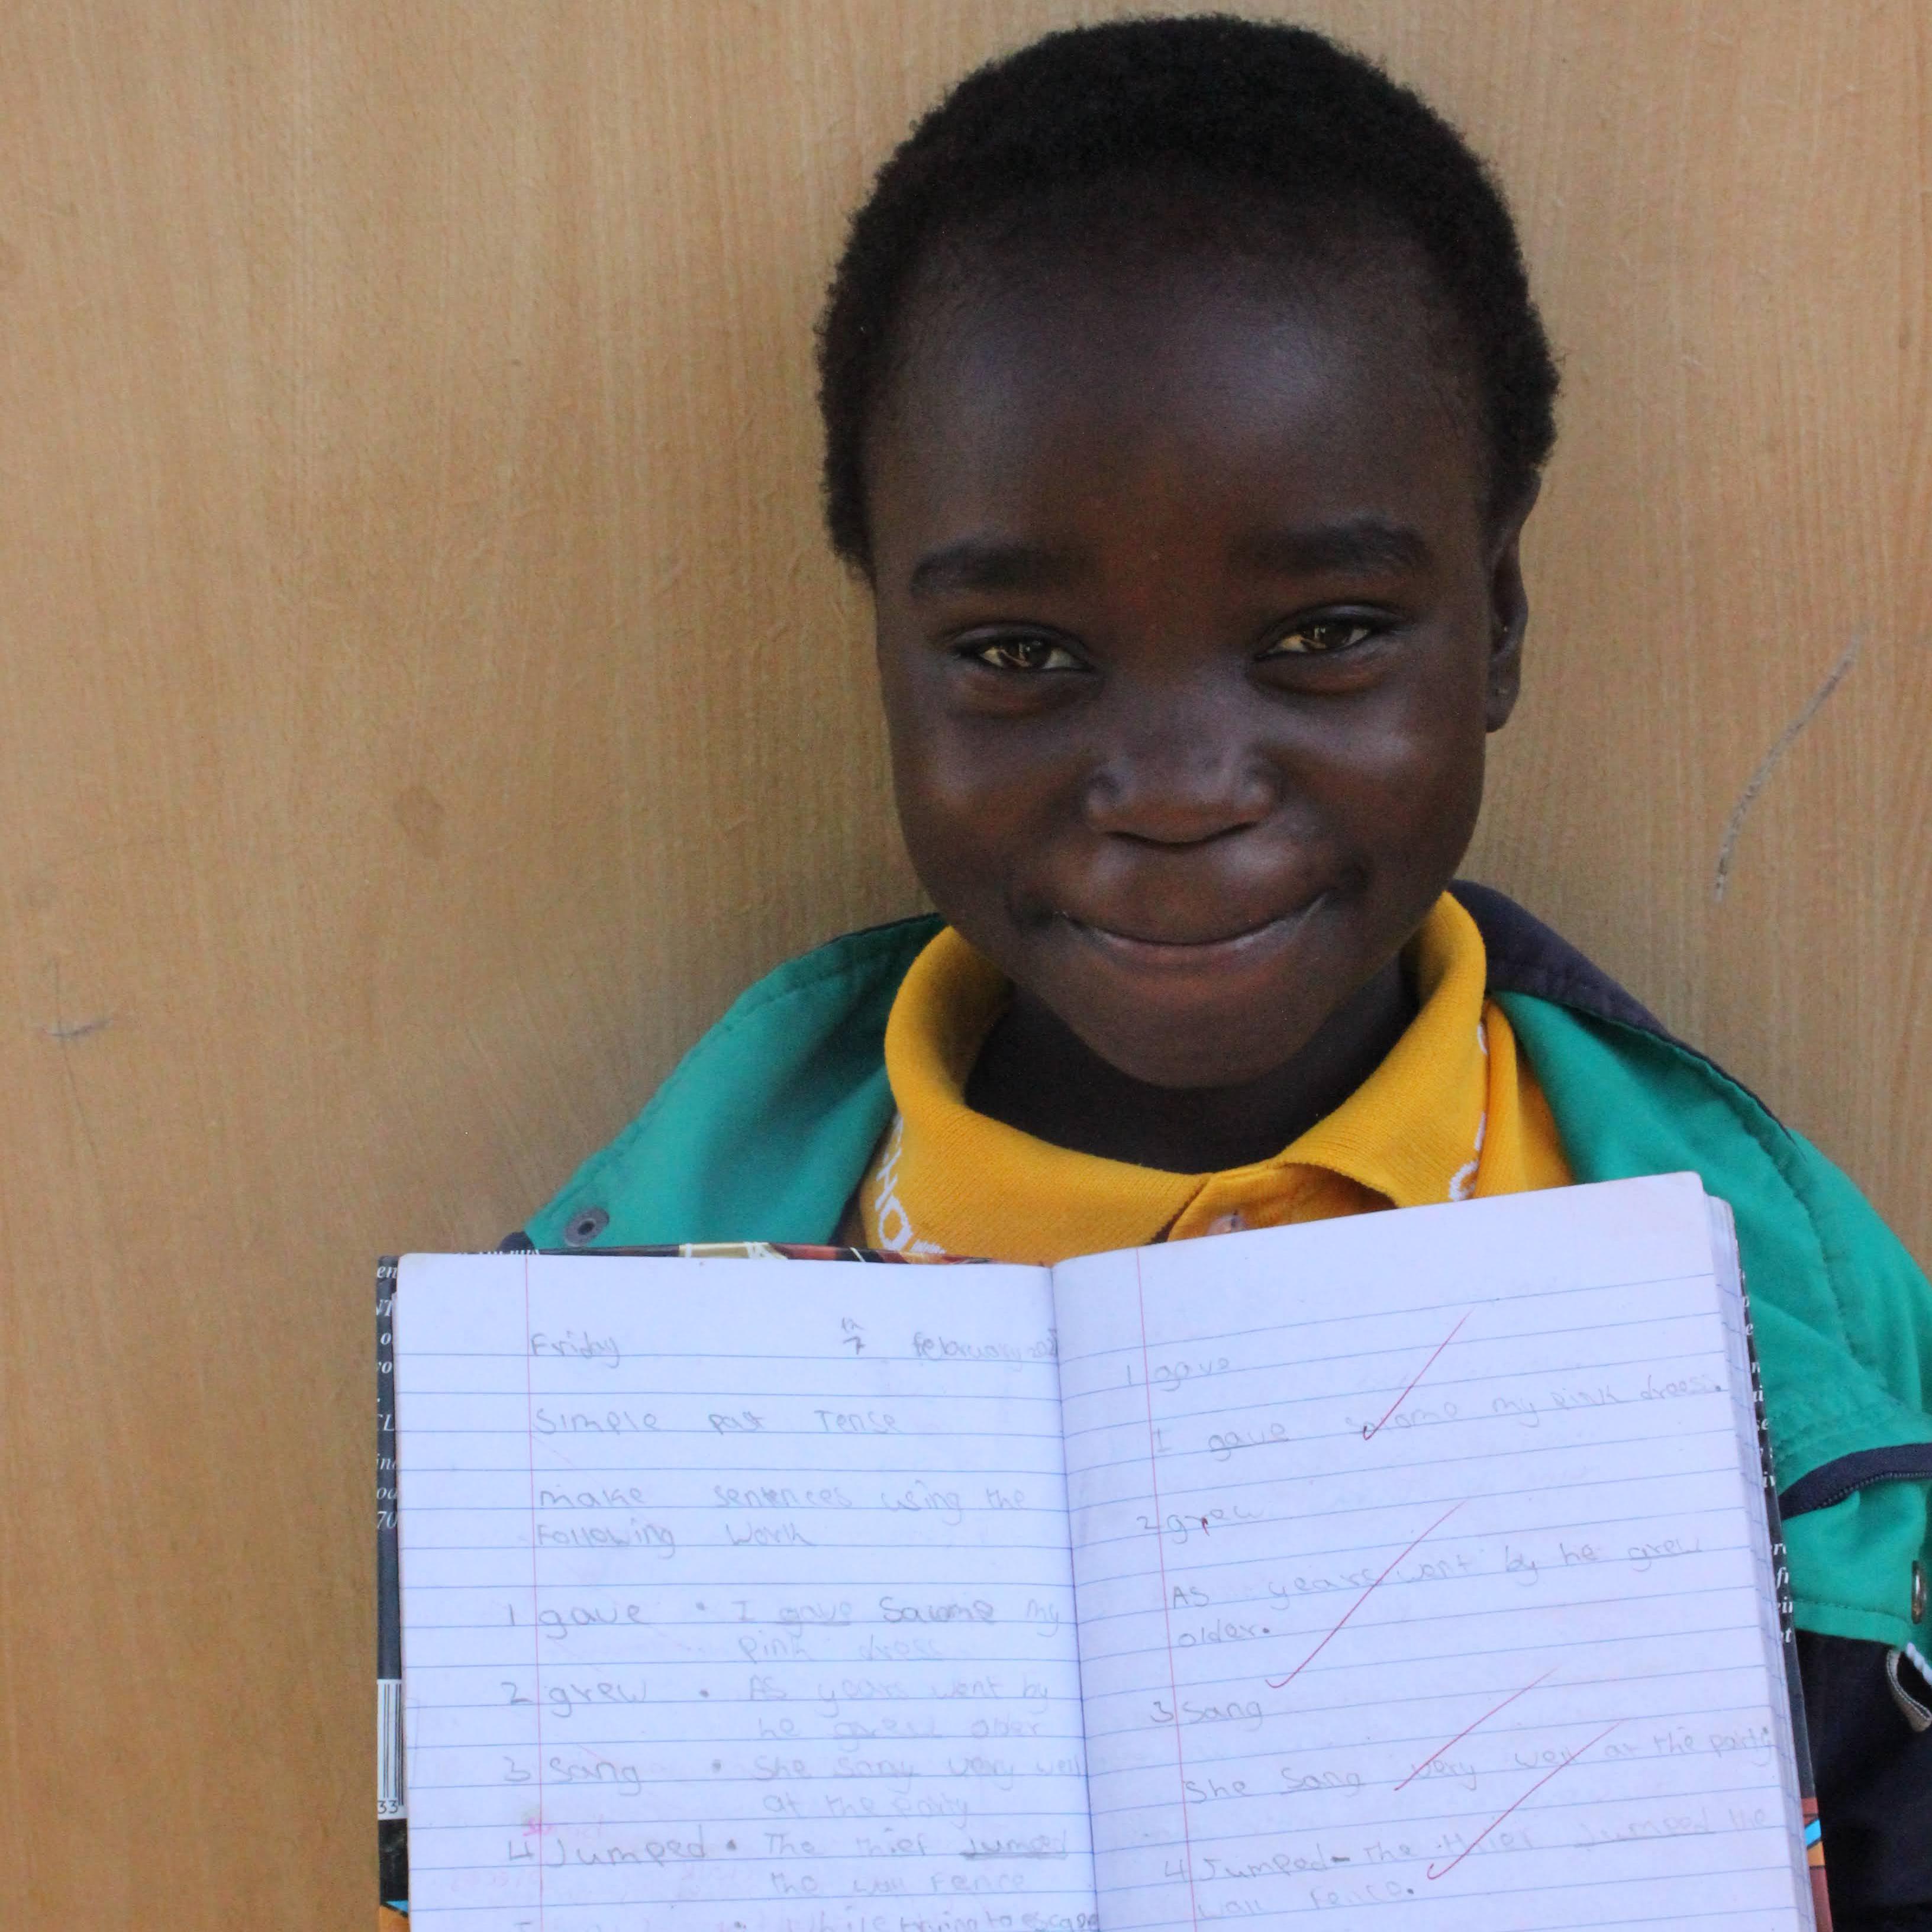 Friday 7th february
Simple past Tence
make sentences using the
Following Work
1 gave • I gave Salome my
pink dress
2 grew • AS years went by
he grew older
3 Sang • She sang very well
at the party
4 Jumped • The thief Jumped
the wall Fence
• While trying to escape
1 gave
I gave Salome my pink dress.
2 grew
AS years went by he grew
older.
3 Sang
She Sang very well at the party
4 Jumped - The thief Jumped the
wall Fence.